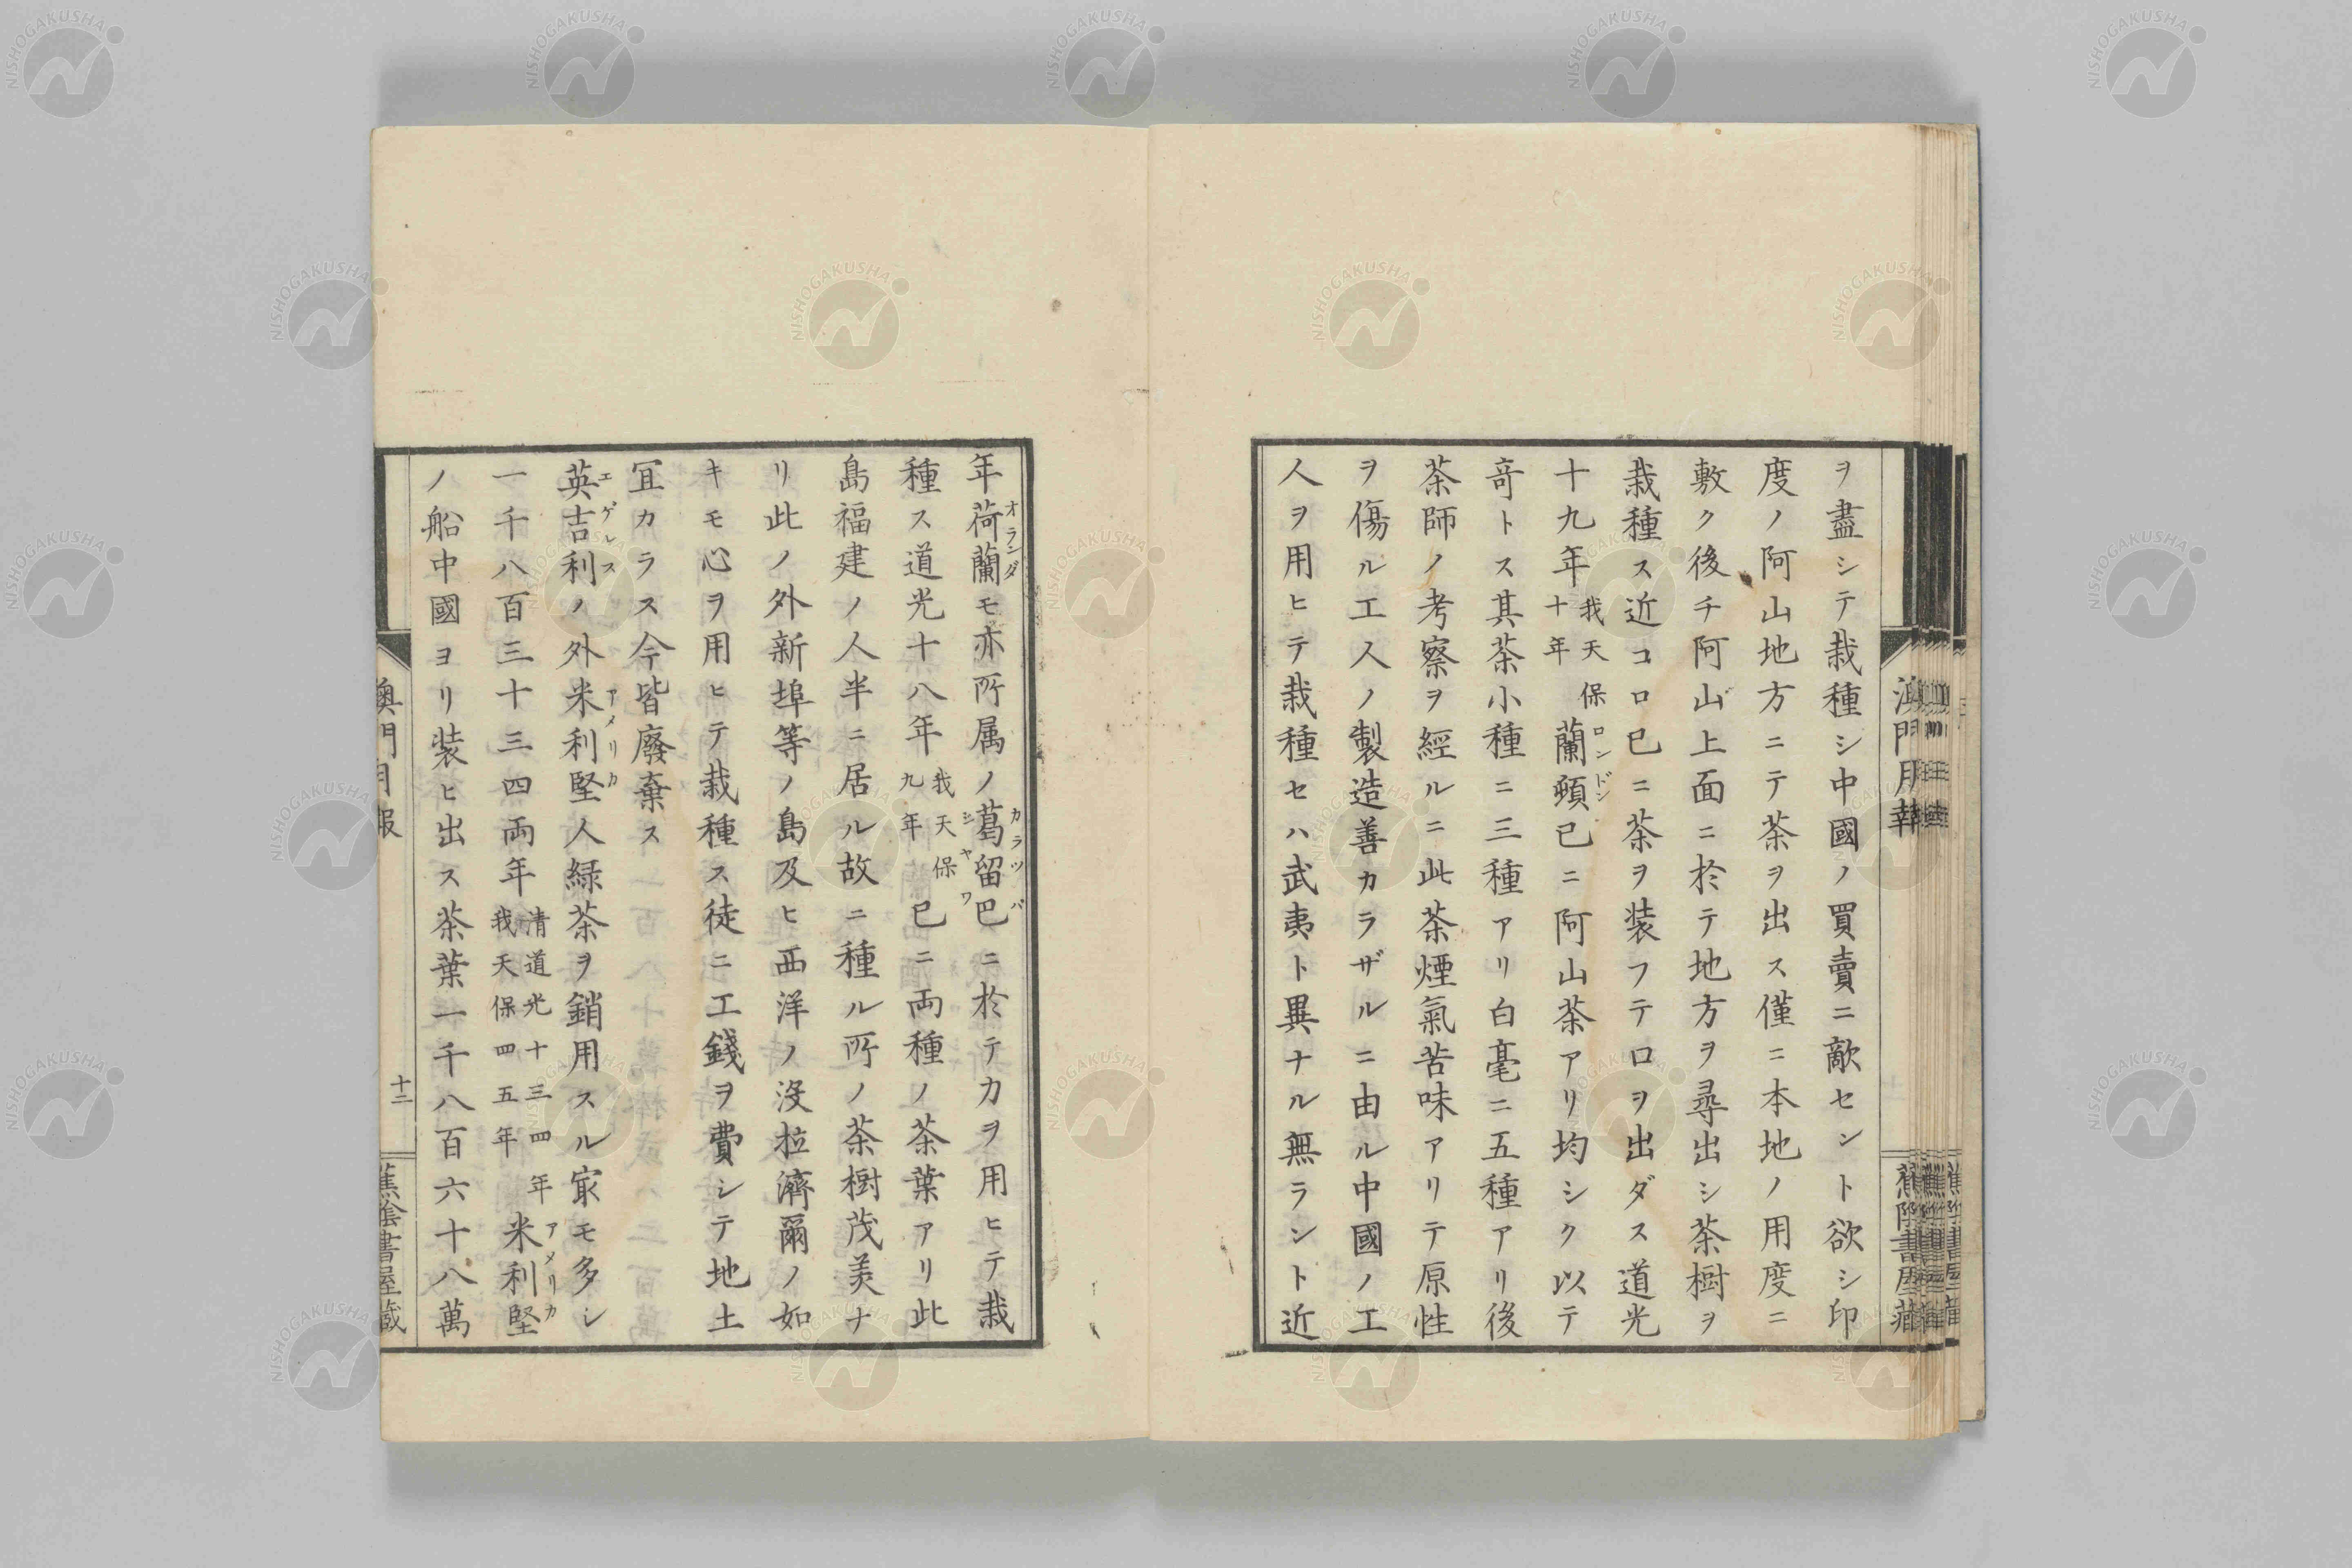 ヲ盡シテ栽種シ中國ノ買賣ニ敵セント欲シ印
度ノ阿山地方ニテ茶ヲ出ス僅ニ本地ノ用度ニ
敷ク後チ阿山上面ニ於テ地方ヲ尋出シ茶樹ヲ
栽種ス近コロ已ニ茶ヲ装フテロヲ出ダス道光
十九年我天保十年蘭頓已ニ阿山茶アリ均シク以テ
ロンドン
竒トス其茶小種ニ三種アリ白毫ニ五種アリ後
茶師ノ考察ヲ經ルニ此茶煙氣苦味アリテ原性
ヲ傷ル工人ノ製造善カラザルニ由ル中國ノ工
人ヲ用ヒテ栽種セハ武夷ト異ナル無ラント近
年荷蘭モ亦所属ノ葛留巴ニ於テ力ヲ用ヒテ栽
オランダ
カラツバ
シヤワ
種ス道光十八年我天保九年已ニ両種ノ茶葉アリ此
島福建ノ人半ニ居ル故ニ種ル所ノ茶樹茂美ナ
リ此ノ外新埠等ノ島及ヒ西洋ノ沒拉濟爾ノ如
キモ心ヲ用ヒテ栽種ス徒ニ工錢ヲ費シテ地土
冝カラス今皆廢棄ス
英吉利ノ外米利堅人緑茶ヲ銷用スル㝡モ多シ
エゲレス
アメリカ
一千八百三十三四両年清道光十三四年我天保四五年米利堅
アメリカ
ノ船中國ヨリ装ヒ出ス茶葉一千八百六十八萬
澳門月報
十二
蕉陰書屋藏
NISHOGAKUSHA